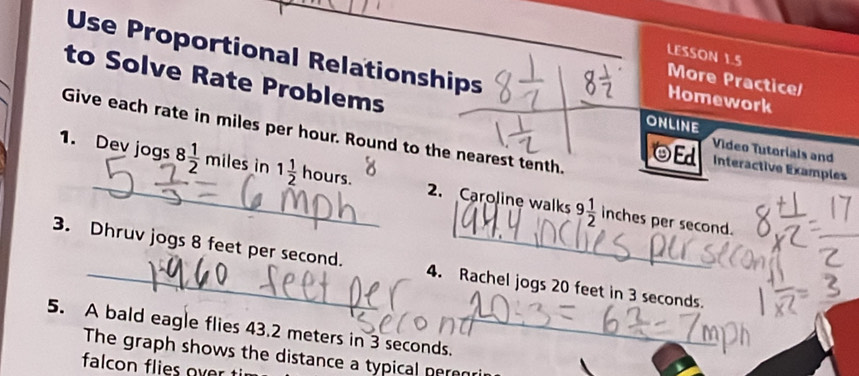 Use Proportional Relationships
to Solve Rate Problems
8 1/2 | 8 1/2
1 1/2
LESSON 1.5
More Practice/
Homework
ONLINE
Ed
Video Tutorials and
Interactive Examples
Give each rate in miles per hour. Round to the nearest tenth.
1. Dev jogs 8 1/2 miles in 1 1/2 hours.
8
5 2/3 = 6 mph
2. Caroline walks 9 1/2 inches per second.
194.4 inches per second
8 +1/×2 = 17/2
1 +1/×2 = 3
3. Dhruv jogs 8 feet per second.
feet per
second
4. Rachel jogs 20 feet in 3 seconds.
20÷3 = 6 2/3 = 7mph
5. A bald eagle flies 43.2 meters in 3 seconds.
The graph shows the distance a typical
falcon flies over